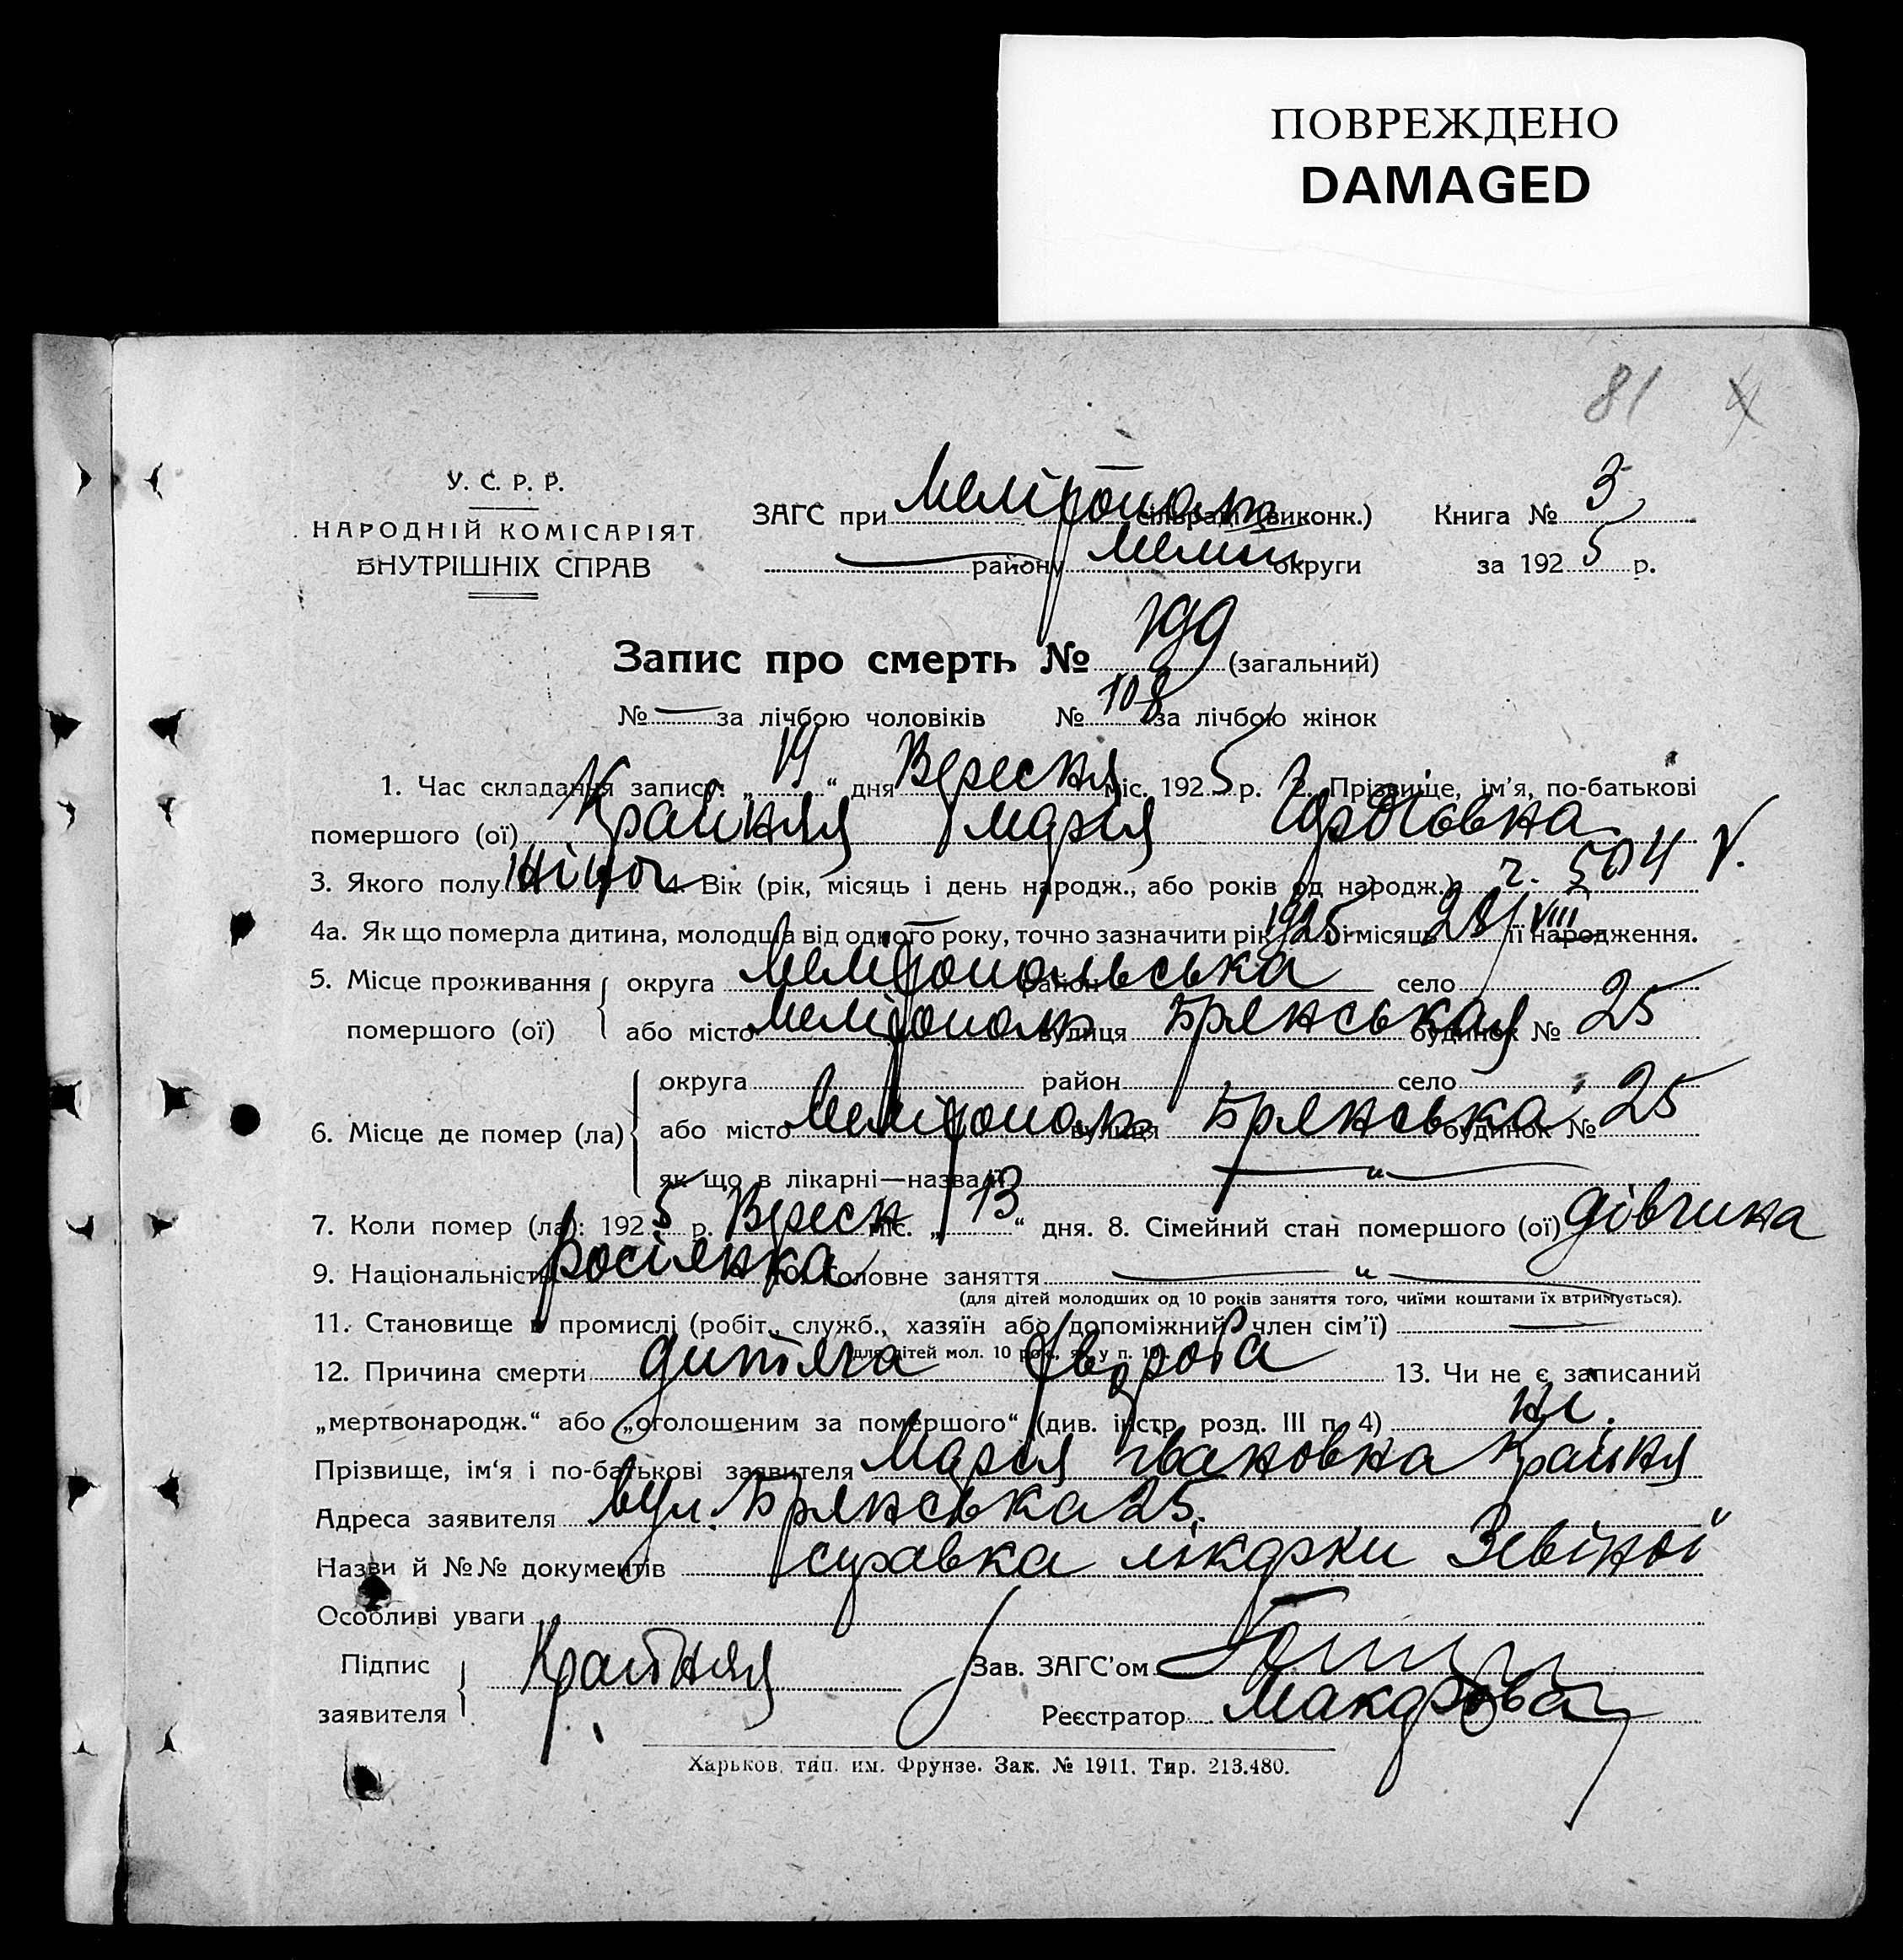 ПОВРЕЖДЕНО
DAMAGED
81
У. С. Р. Р.
НАРОДНІЙ КОМІСАРІЯТ
ВНУТРІШНІХ СПРАВ
ЗАГС при Мелітопол. сільраді (виконк.) Книга № 3
— району Мелит округи за 1925 р.
Запис про смерть № 199 (загальний)
№ — за лічбою чоловіків № 108 за лічбою жінок
1. Час складання запису: „ “ дня Вересня міс. 1925 р. 2. Прізвище, ім'я, по-батькові
помершого (ої) Крайняя Марія
3. Якого полу жіноч 4. Вік (рік, місяць і день народж., або років од народж.) г. 504 V.
4а. Як що померла дитина, молодша від одного року, точно зазначити рік 1925 і місяць 28/VIII її народження.
5. Місце проживання округа Мелітопольська район — село
помершого (ої) або місто Мелітополь вулиця Брянськая будинок № 25
округа район село
6. Місце де помер (ла) або місто Мелітополь вулиця Брянська будинок № 25
як що в лікарні—назва її — „ —
7. Коли помер (ла): 1925 р. Вересн міс. „13“ дня. 8. Сімейний стан помершого (ої) дівчина
9. Національність росіянка 10. Головне заняття — „ —
(для дітей молодших од 10 років заняття того, чиїми коштами їх втримується).
11. Становище в промислі (робіт., служб., хазяїн або допоміжний член сім'ї) —
(для дітей мол. 10 рок., як у п. 10).
12. Причина смерти дитяча хвороба 13. Чи не є записаний
„мертвонародж.“ або „оголошеним за помершого“ (див. інстр. розд. III п. 4) ні.
Прізвище, ім'я і по-батькові заявителя Марія Івановна Крайня
Адреса заявителя вул. Брянська 25.
Назви й №№ документів справка лікарки Зевіної
Особливі уваги
Підпис
заявителя Крайняя
Зав. ЗАГС'ом
Реєстратор
Харьков, тип. им. Фрунзе. Зак. № 1911. Тир. 213.480.